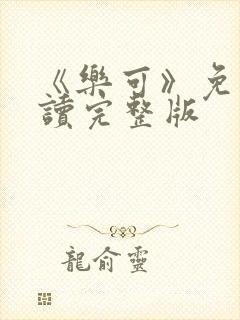 《樂可》免
讀完整版
龍俞靈